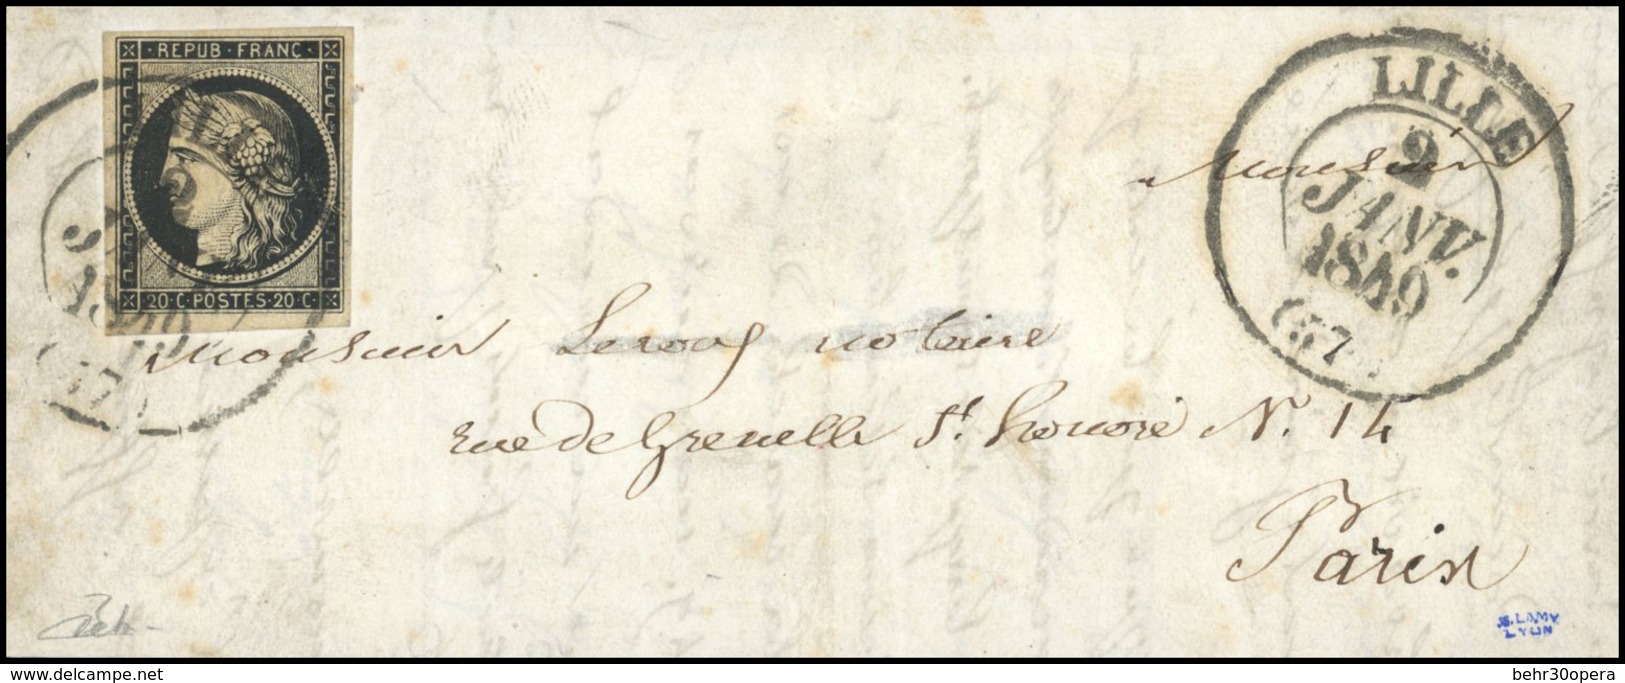 · REPUB · FRANC ·
20 · C · POSTES · 20 · C ·
LILLE
2
JANV.
1849
(57)
Monsieur
Monsieur Leroy notaire
rue de Grenelle St. honoré N. 14
Paris
LAMY
LYON
delcampe.net
behr30opera